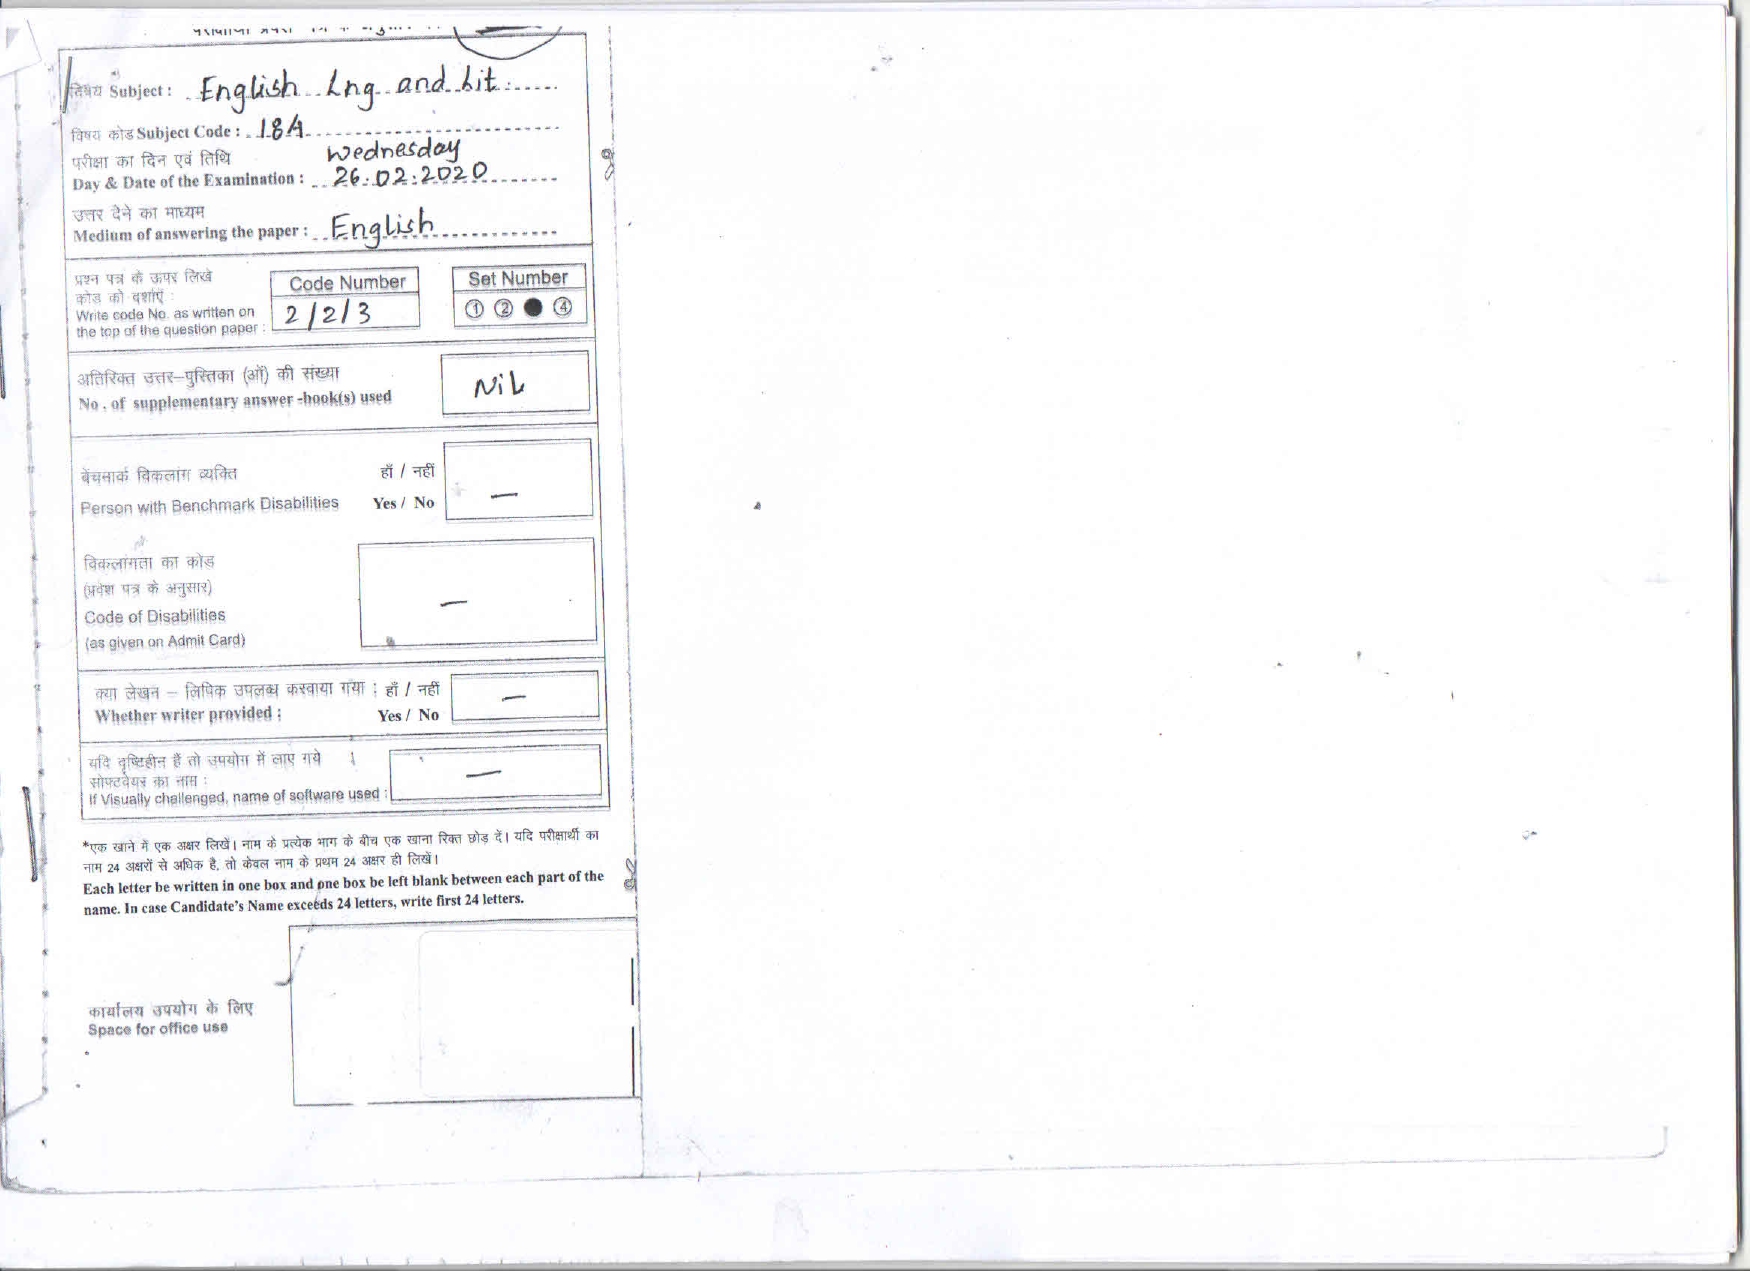 विषय Subject : English Lng and Lit
विषय कोड Subject Code : 184
परीक्षा का दिन एवं तिथि Wednesday
Day & Date of the Examination : 26.02.2020
उत्तर देने का माध्यम
Medium of answering the paper : English
प्रश्न पत्र के ऊपर लिखे
कोड को दर्शाएं :
Write code No. as written on
the top of the question paper :
Code Number
2/2/3
Set Number
1 2 4
अतिरिक्त उत्तर-पुस्तिका (ओं) की संख्या
No. of supplementary answer -book(s) used
NiL
बेंचमार्क विकलांग व्यक्ति हाँ / नहीं
Person with Benchmark Disabilities Yes / No
—
विकलांगता का कोड
(प्रवेश पत्र के अनुसार)
Code of Disabilities
(as given on Admit Card)
—
क्या लेखन – लिपिक उपलब्ध करवाया गया : हाँ / नहीं
Whether writer provided : Yes / No
—
यदि दृष्टिहीन हैं तो उपयोग में लाए गये
सोफ्टवेयर का नाम :
If Visually challenged, name of software used :
—
*एक खाने में एक अक्षर लिखें। नाम के प्रत्येक भाग के बीच एक खाना रिक्त छोड़ दें। यदि परीक्षार्थी का
नाम 24 अक्षरों से अधिक है, तो केवल नाम के प्रथम 24 अक्षर ही लिखें।
Each letter be written in one box and one box be left blank between each part of the
name. In case Candidate's Name exceeds 24 letters, write first 24 letters.
कार्यालय उपयोग के लिए
Space for office use